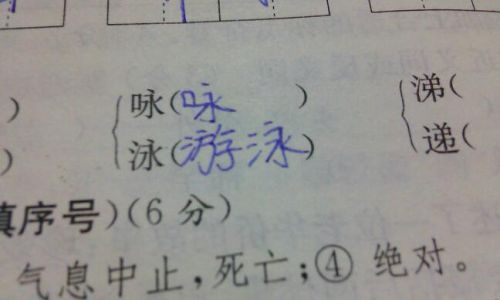 ) 咏(咏 ) 涕(
) 泳(游泳) 递(
填序号)(6分)
气息中止,死亡;④ 绝对。